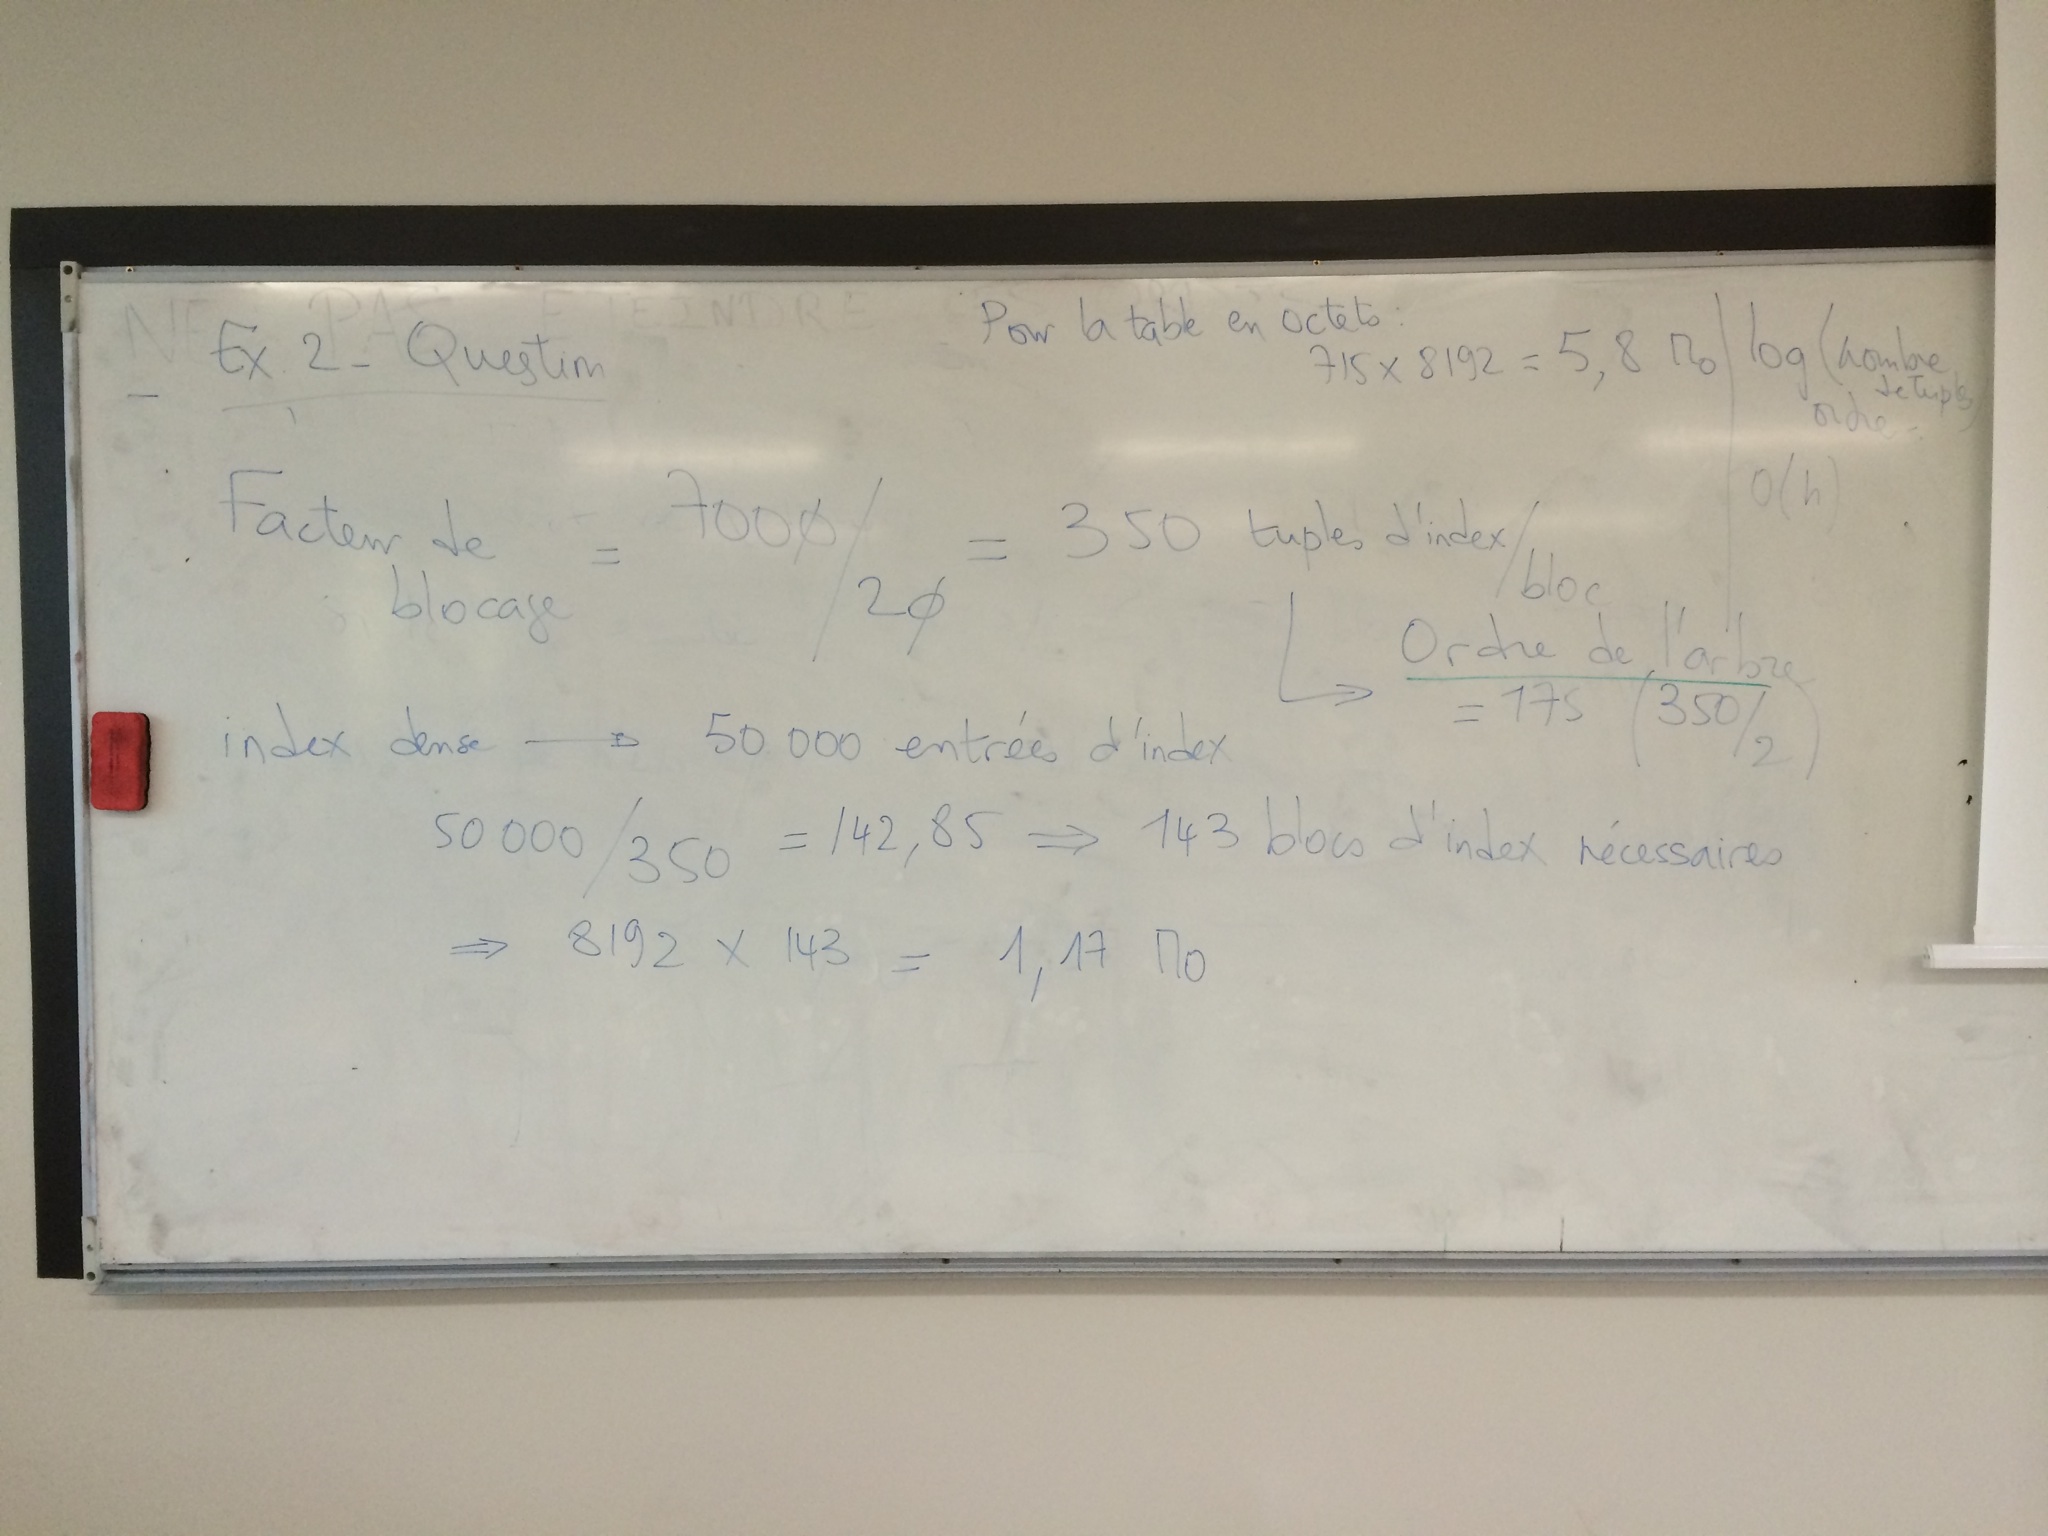 NE PAS ETEINDRE
Ex 2 - Question
Pour la table en octets :
715 x 8192 = 5,8 Mo
log (nombre
de tuples)
ordre
O(h)
Facteur de blocage = 7000 / 20 = 350 tuples d'index / bloc
Ordre de l'arbre
= 175 (350/2)
index dense → 50 000 entrées d'index
50 000 / 350 = 142,85 ⇒ 143 blocs d'index nécessaires
⇒ 8192 x 143 = 1,17 Mo